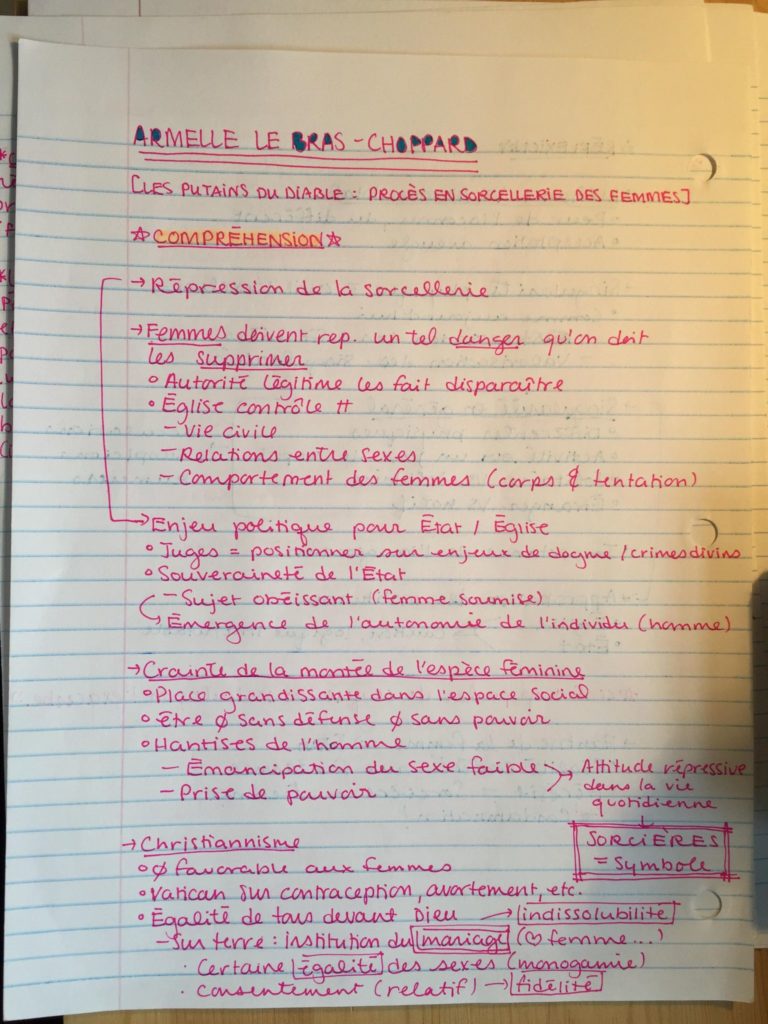 ARMELLE LE BRAS-CHOPPARD
[LES PUTAINS DU DIABLE : PROCÈS EN SORCELLERIE DES FEMMES]
☆COMPRÉHENSION☆
→ Répression de la sorcellerie
→ Femmes doivent rep. un tel danger qu'on doit
les supprimer
° Autorité légitime les fait disparaître
° Église contrôle tt
- Vie civile
- Relations entre sexes
- Comportement des femmes (corps & tentation)
→ Enjeu politique pour État / Église
° Juges = positionner sur enjeux de dogme / crimes divins
° Souveraineté de l'État
- Sujet obéissant (femme soumise)
→ Émergence de l'autonomie de l'individu (homme)
→ Crainte de la montée de l'espèce féminine
° Place grandissante dans l'espace social
° être ∅ sans défense ∅ sans pouvoir
° Hantises de l'homme
- Émancipation du sexe faible
- Prise de pouvoir
→ Attitude répressive
dans la vie
quotidienne
↓
SORCIÈRES
= Symbole
→ Christiannisme
° ∅ favorable aux femmes
° Vatican sur contraception, avortement, etc.
° Égalité de tous devant Dieu → indissolubilité
- Sur terre : institution du mariage (♡ femme...)
· Certaine égalité des sexes (monogamie)
· Consentement (relatif) → fidélité